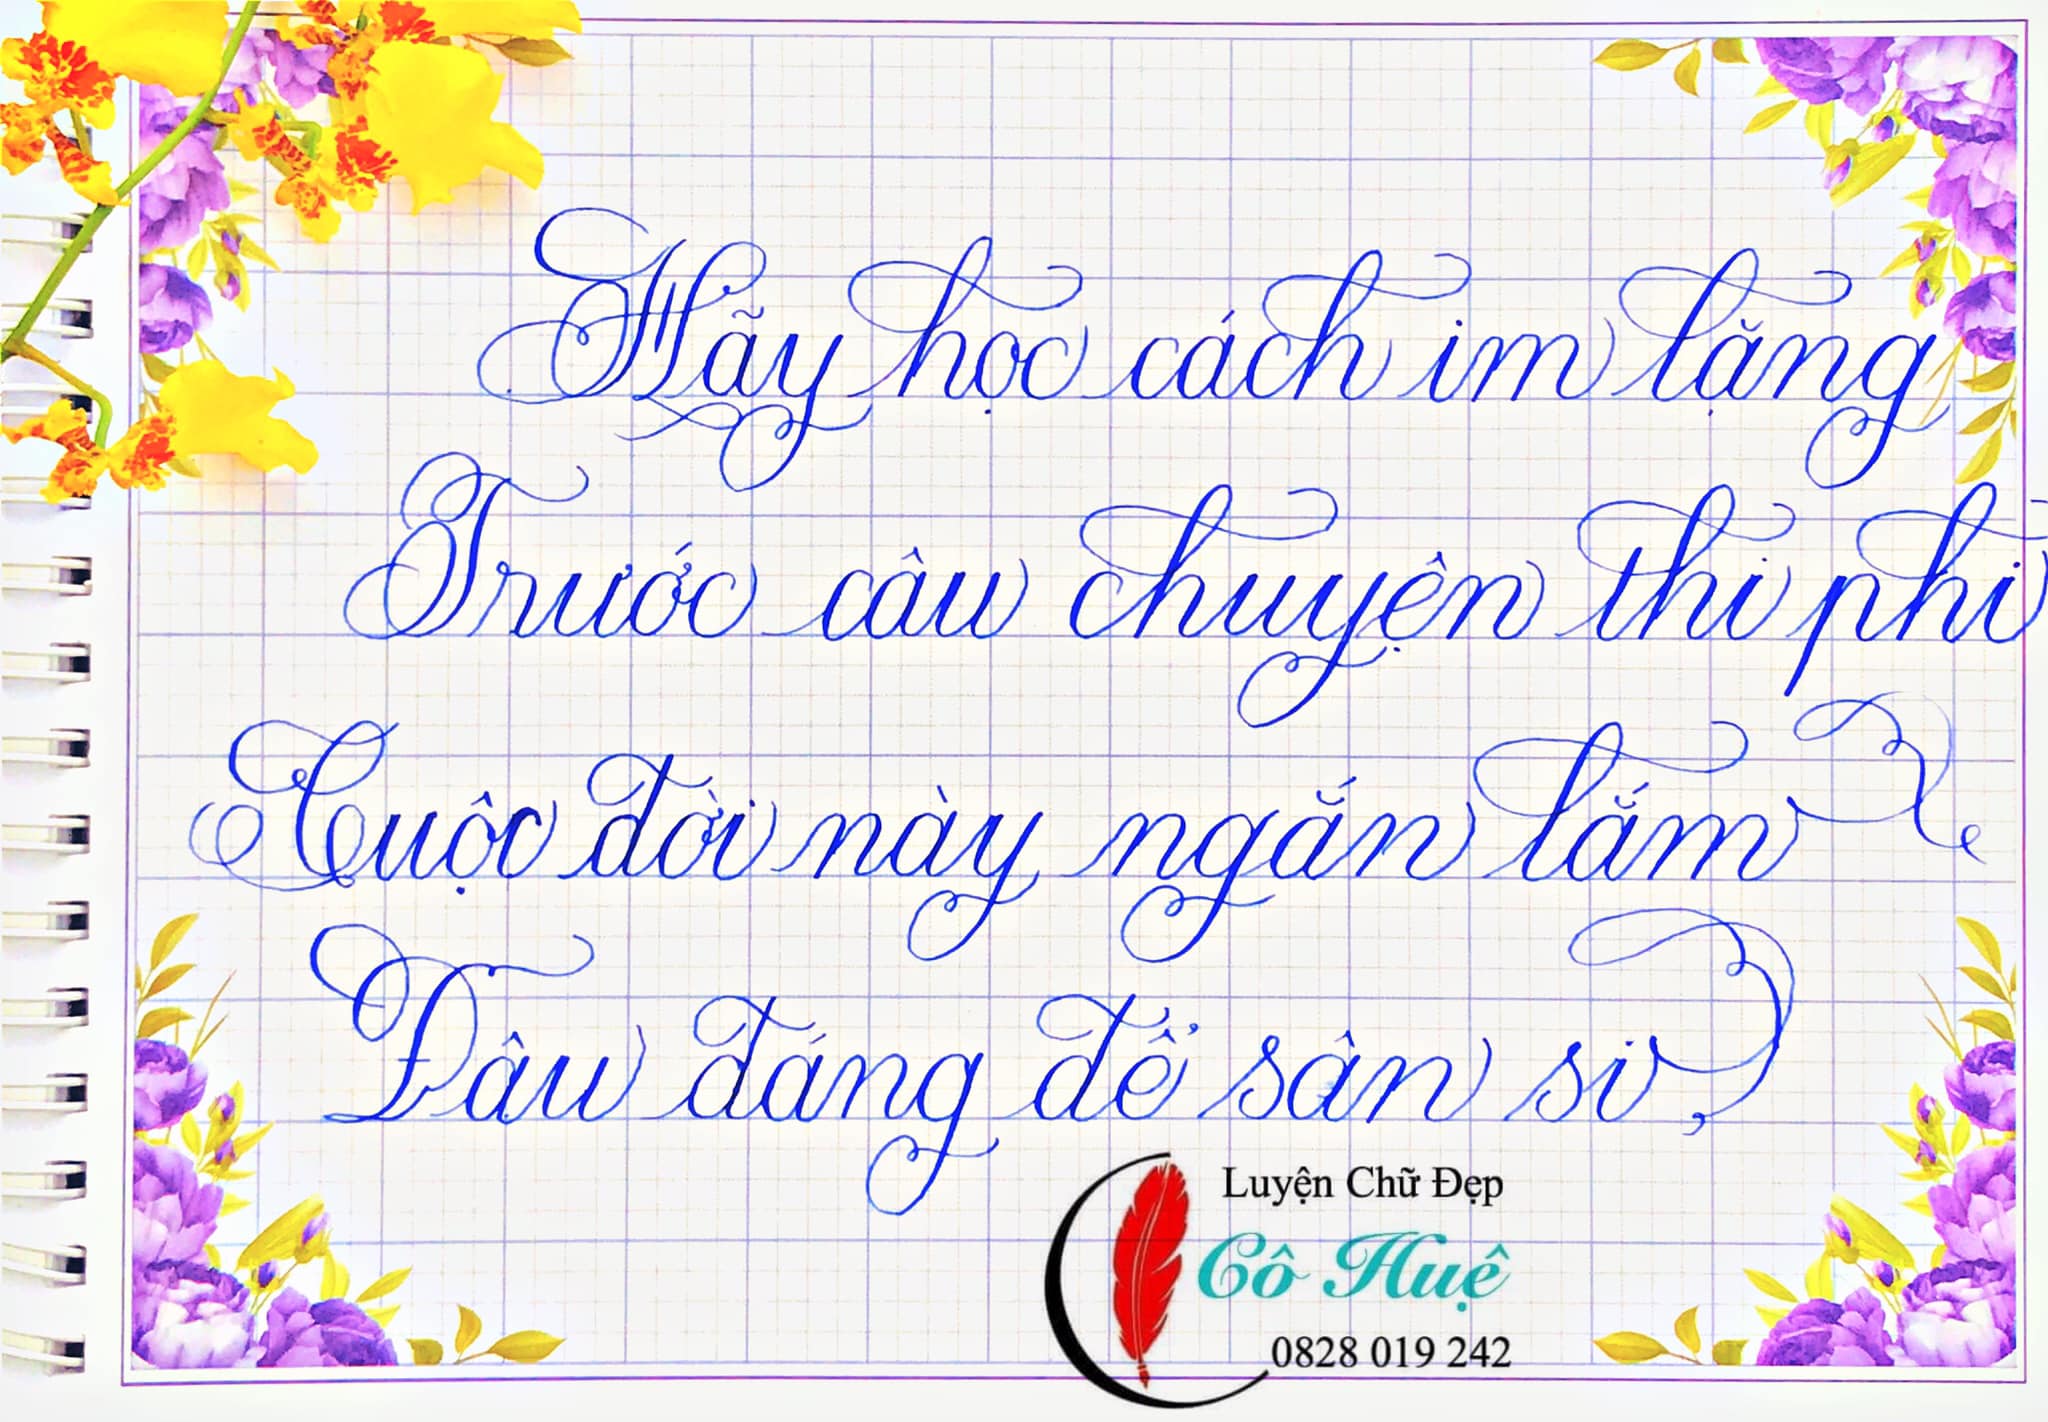 Hãy học cách im lặng
Trước câu chuyện thi phi
Cuộc đời này ngắn lắm
Đâu đáng để sân si,
Luyện Chữ Đẹp
Cô Huệ
0828 019 242